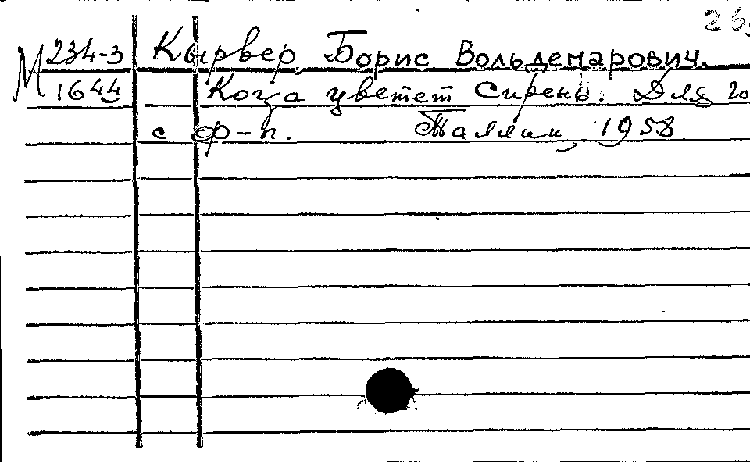 26
М 234-3 Кырвер, Борис Вольдемарович.
1644 Когда цветет сирень. Для го
с ф-п. Таллин, 1958